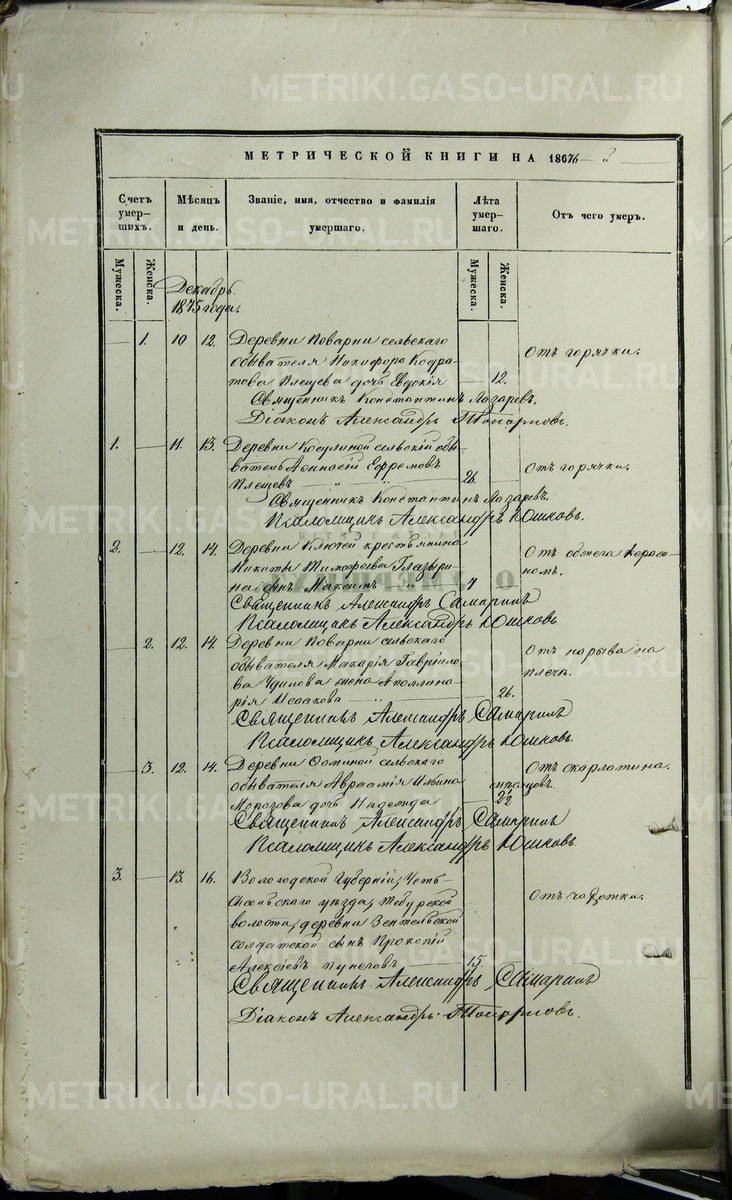 МЕТРИЧЕСКОЙ КНИГИ НА 1876
Счетъ умер-шихъ. Мѣсяцъ и день. Званіе, имя, отчество и фамилія умершаго. Лѣта умер-шаго. Отъ чего умеръ.
Мужеска. Женска. Мужеска. Женска.
Декабрь
1875 года.
1. 10 12. Деревни Поварни сельскаго
обывателя Никифора Кодра-
това Плещева дочь Евдокія 12. Отъ горячки.
Священникъ Константинъ Лазаревъ.
Діаконъ Александръ Топорковъ.
1. 11. 13. Деревни Косулиной сельскій обы-
ватель Аѳанасій Ефремовъ
Плещевъ 26. Отъ горячки.
Священникъ Константинъ Лазаревъ.
Псаломщикъ Александръ Юшковъ.
2. 12. 14. Деревни Ключей крестьянина
Никиты Тимофеева Глазыри-
на сынъ 4 Отъ обжега кероси-
номъ.
Священникъ Александръ Самаринъ
Псаломщикъ Александръ Юшковъ
2. 12. 14. Деревни Поварни сельскаго
обывателя Макарія Гавріило-
ва жена Аполлина-
рія Исаакова 26. Отъ нарыва на
плечѣ.
Священникъ Александръ Самаринъ
Псаломщикъ Александръ Юшковъ.
3. 12. 14. Деревни сельскаго
обывателя Авраамія Ильина
Морозова дочь Надежда Отъ скарлатина.
Священникъ Александръ Самаринъ
Псаломщикъ Александръ Юшковъ
3. 13. 16. Вологодской Губерніи, Усть-
Сысольскаго уѣзда,
волости, деревни
солдатской сынъ Прокопій
Алексѣевъ 15 Отъ чахотки.
Священникъ Александръ Самаринъ
Діаконъ Александръ Топорковъ.
METRIKI.GASO-URAL.RU